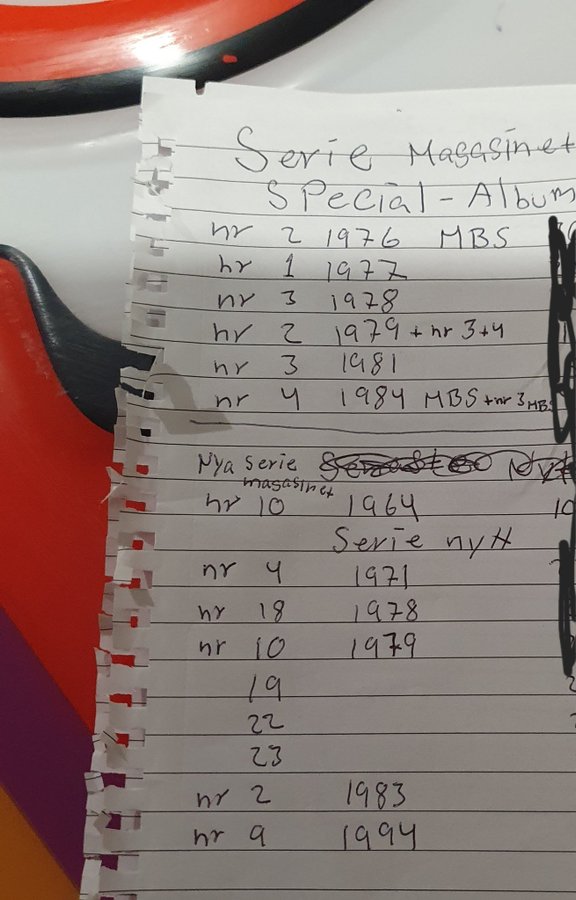 Serie Magasinet
SPecial - Album
nr 2 1976 MBS
nr 1 1977
nr 3 1978
nr 2 1979 + nr 3+4
nr 3 1981
nr 4 1984 MBS + nr 3 MBS
Nya Serie
magasinet
nr 10 1964 10
Serie nytt
nr 4 1971
nr 18 1978
nr 10 1979
19
22
23
nr 2 1983
nr 9 1994